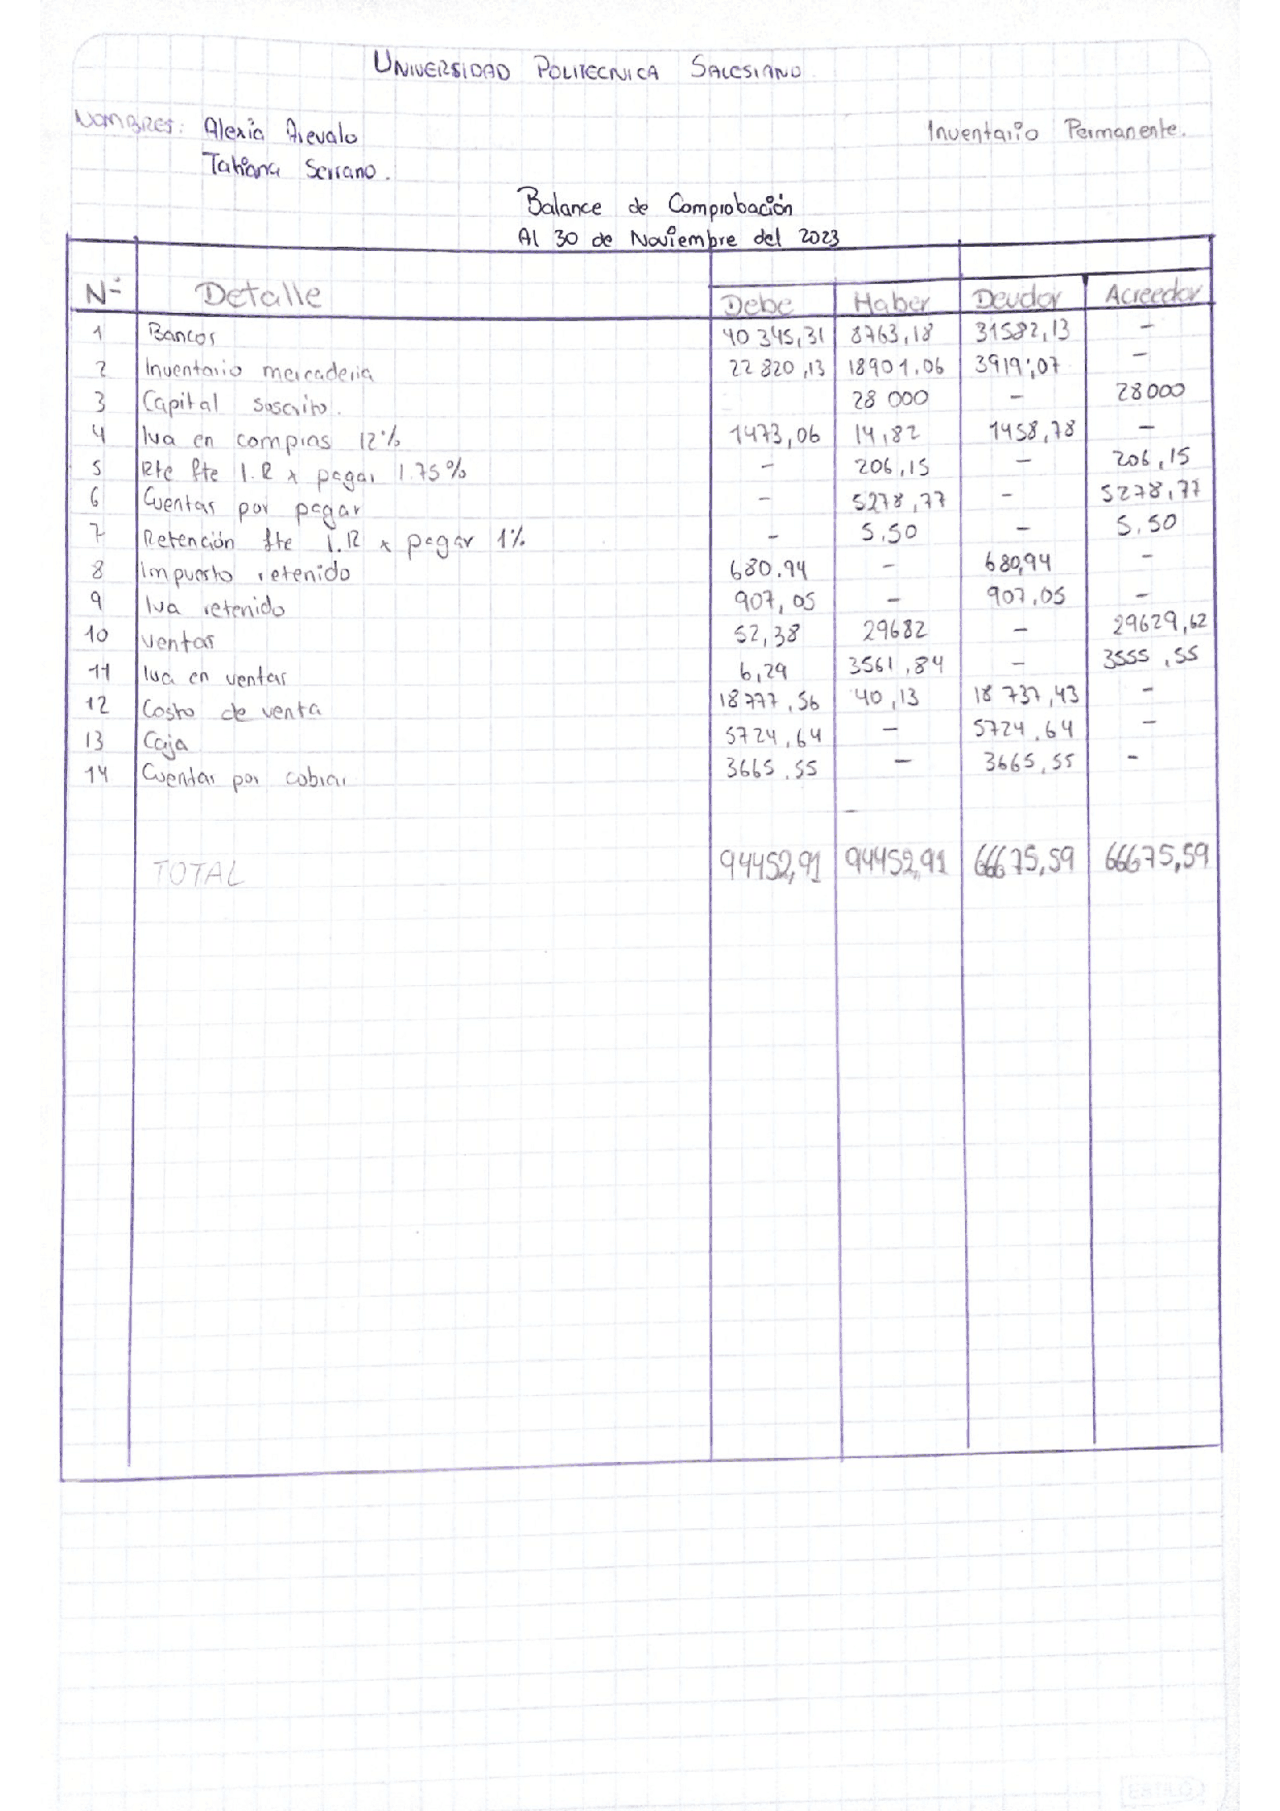 UNIVERSIDAD POLITECNICA SALESIANO
Nombres: Alexia Arevalo
Inventario Permanente.
Tatiana Serrano.
Balance de Comprobación
Al 30 de Noviembre del 2023
Nº Detalle Debe Haber Deudor Acreedor
1 Bancos 40 345,31 8763,18 31582,13 -
2 Inventario mercaderia 22 820,13 18901.06 3919,07 -
3 Capital suscrito. 28 000 - 28000
4 Iva en compras 12% 1473,06 14,82 1458,78 -
5 Rte fte I.R x pagar 1.75% - 206,15 - 206,15
6 Cuentas por pagar - 5278,77 - 5278,77
7 Retención fte I.R x pagar 1% - 5,50 - 5.50
8 Impuesto retenido 680.94 - 680,94 -
9 Iva retenido 907,05 - 907,05 -
10 ventas 52,38 29682 - 29629,62
11 Iva en ventas 6,29 3561,84 - 3555,55
12 Costo de venta 18777,56 40,13 18 737,43 -
13 Caja 5724,64 - 5724.64 -
14 Cuentas por cobrar 3665.55 - 3665,55 -
-
TOTAL 94452,91 94452,91 66675,59 66675,59
ESTILO